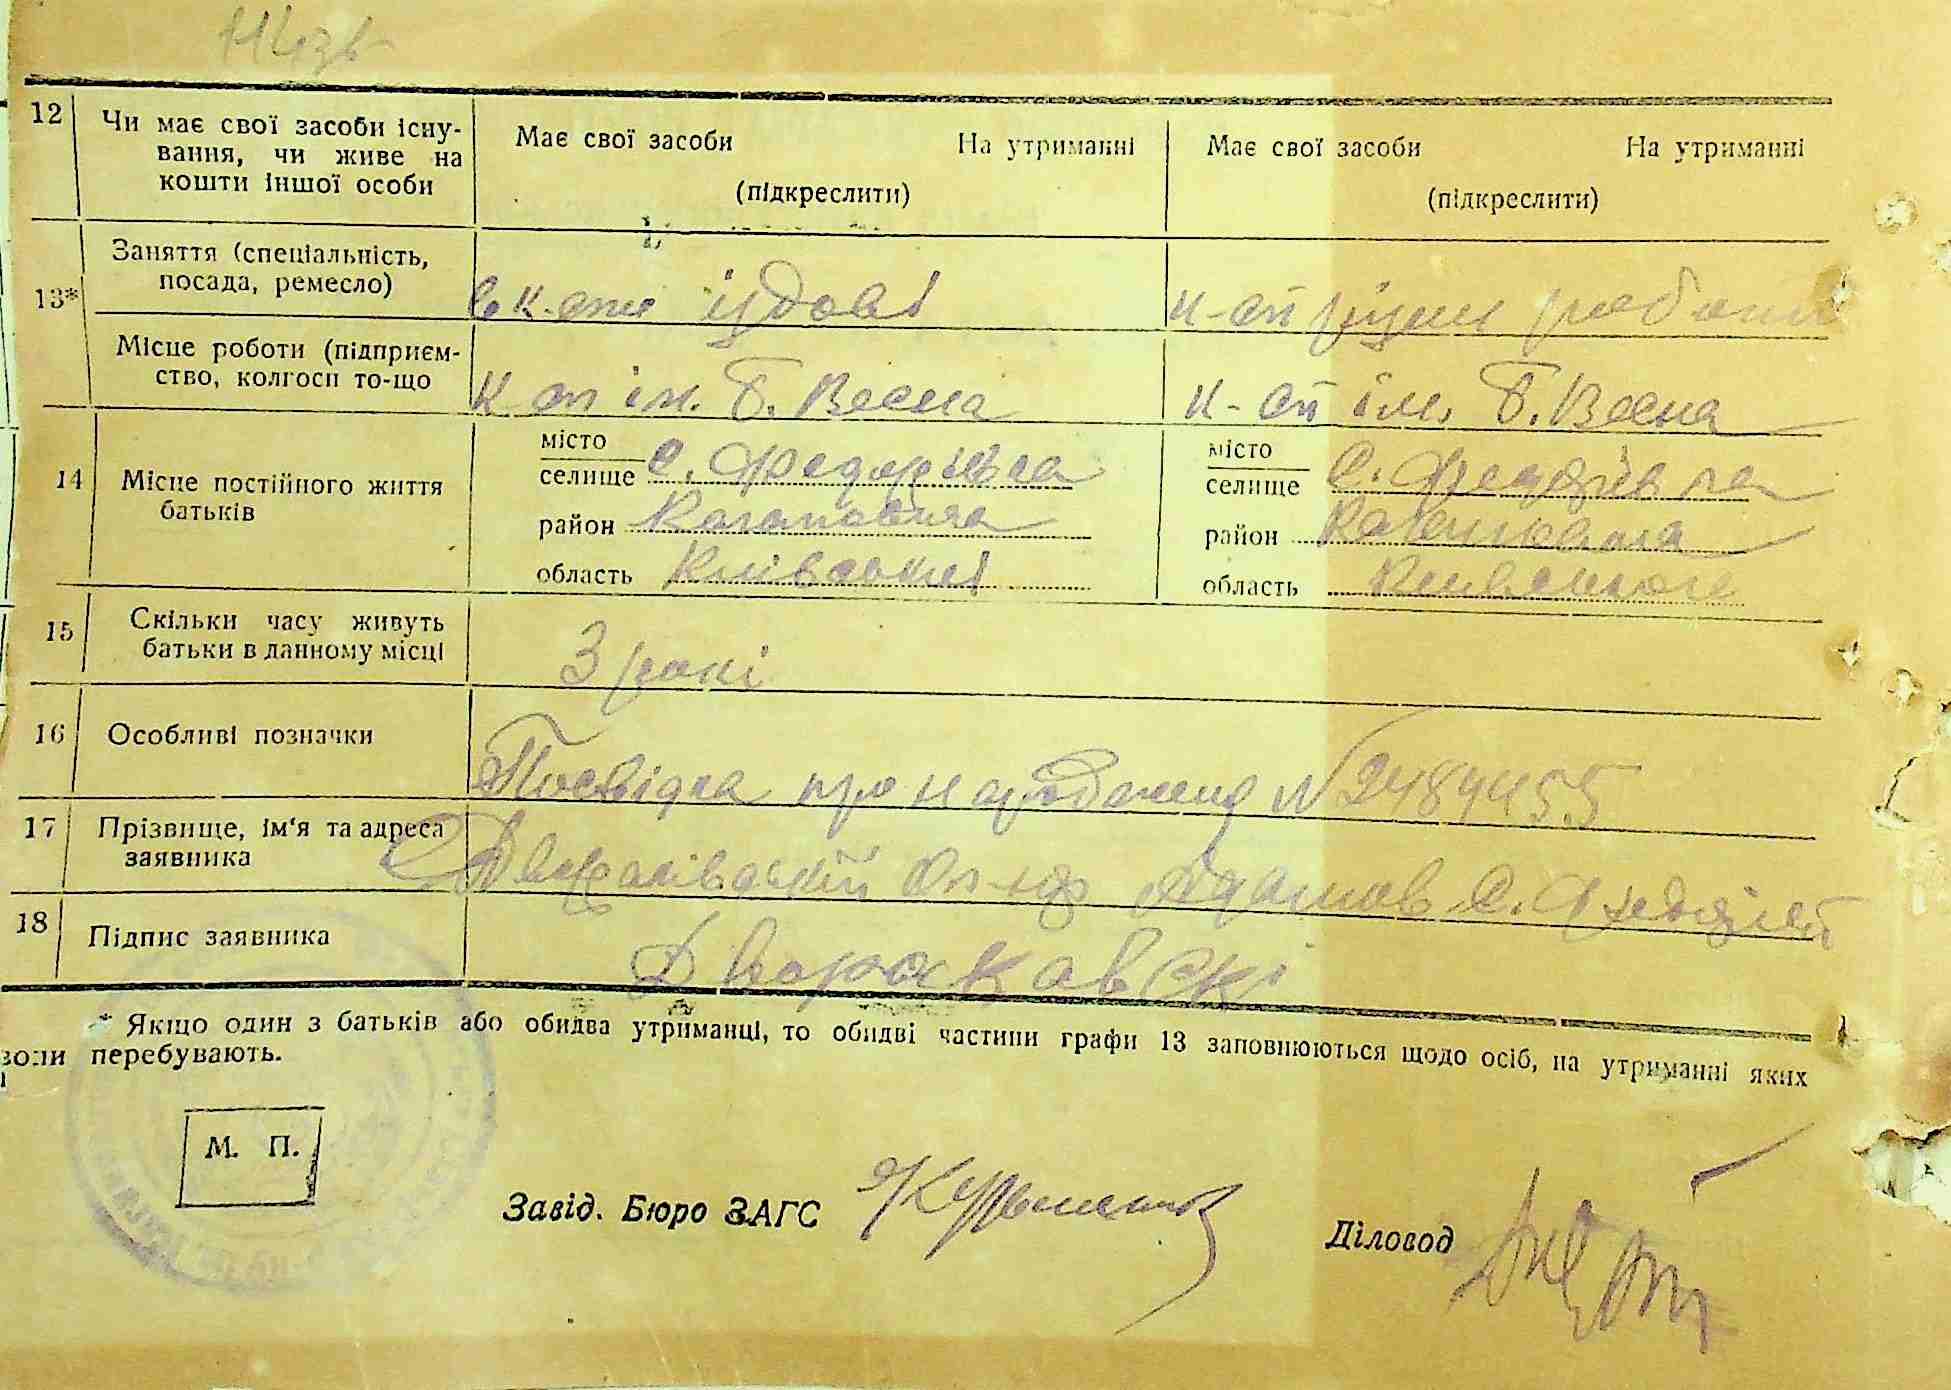 12 Чи має свої засоби існу-
вання, чи живе на
кошти іншої особи
Має свої засоби На утриманні
(підкреслити)
Має свої засоби На утриманні
(підкреслити)
13* Заняття (спеціальність,
посада, ремесло)
в к-спі їздові
к-сп різни робота
Місце роботи (підприєм-
ство, колгосп то-що
К-сп ім. Т. Весна
к-сп ім. Т. Весна
14 Місце постійного життя
батьків
місто
селище С. Федорівка
район Кагановича
область Київської
місто
селище С. Федорівка
район Кагановича
область Київської
15 Скільки часу живуть
батьки в данному місці
3 рокі
16 Особливі позначки
Посвідка про народження № 2484455
17 Прізвище, ім‘я та адреса
заявника
С.
18 Підпис заявника
* Якщо один з батьків або обидва утриманці, то обидві частини графи 13 заповнюються щодо осіб, на утриманні яких
вони перебувають.
М. П.
Завід. Бюро ЗАГС
Діловод